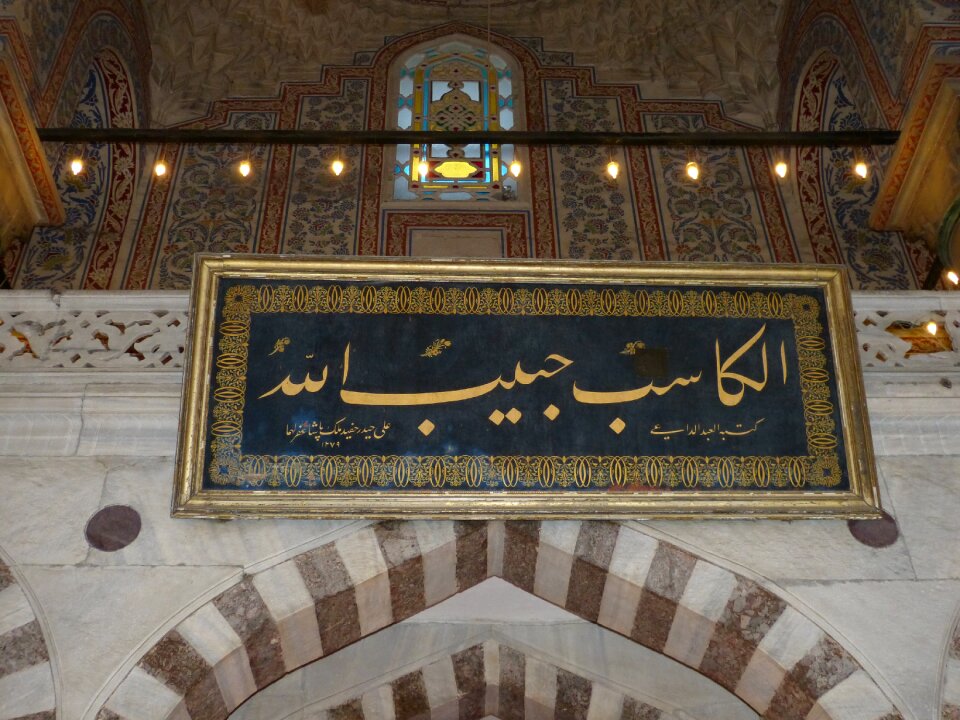 الكاسب حبيب الله
كتبه العبد الداعي
علي حيدر حفيد ملك پاشا غفر لهما
١٢٧٩